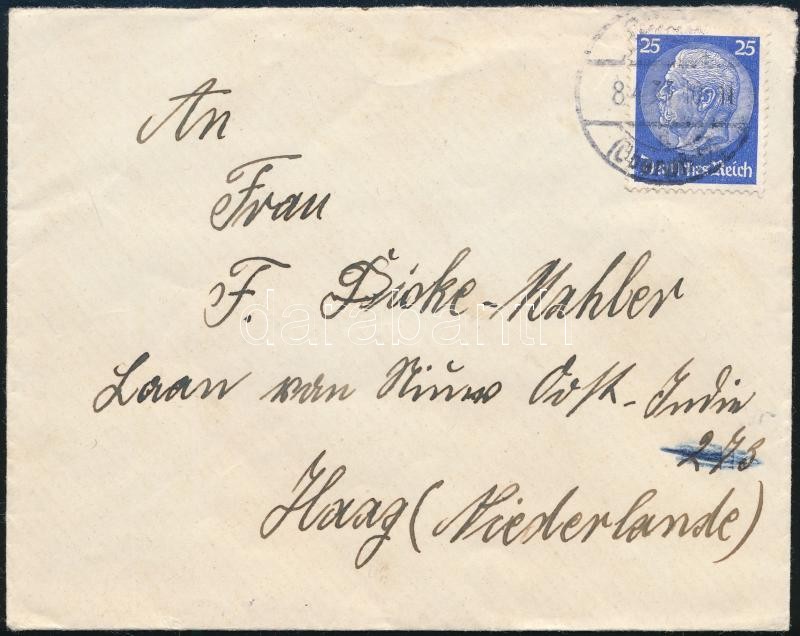 25 25
Deutsches Reich
An
Frau
F. Dicke-Mahler
Laan van Niuw Oost-Indie
273
Haag (Niederlande)
darabanth